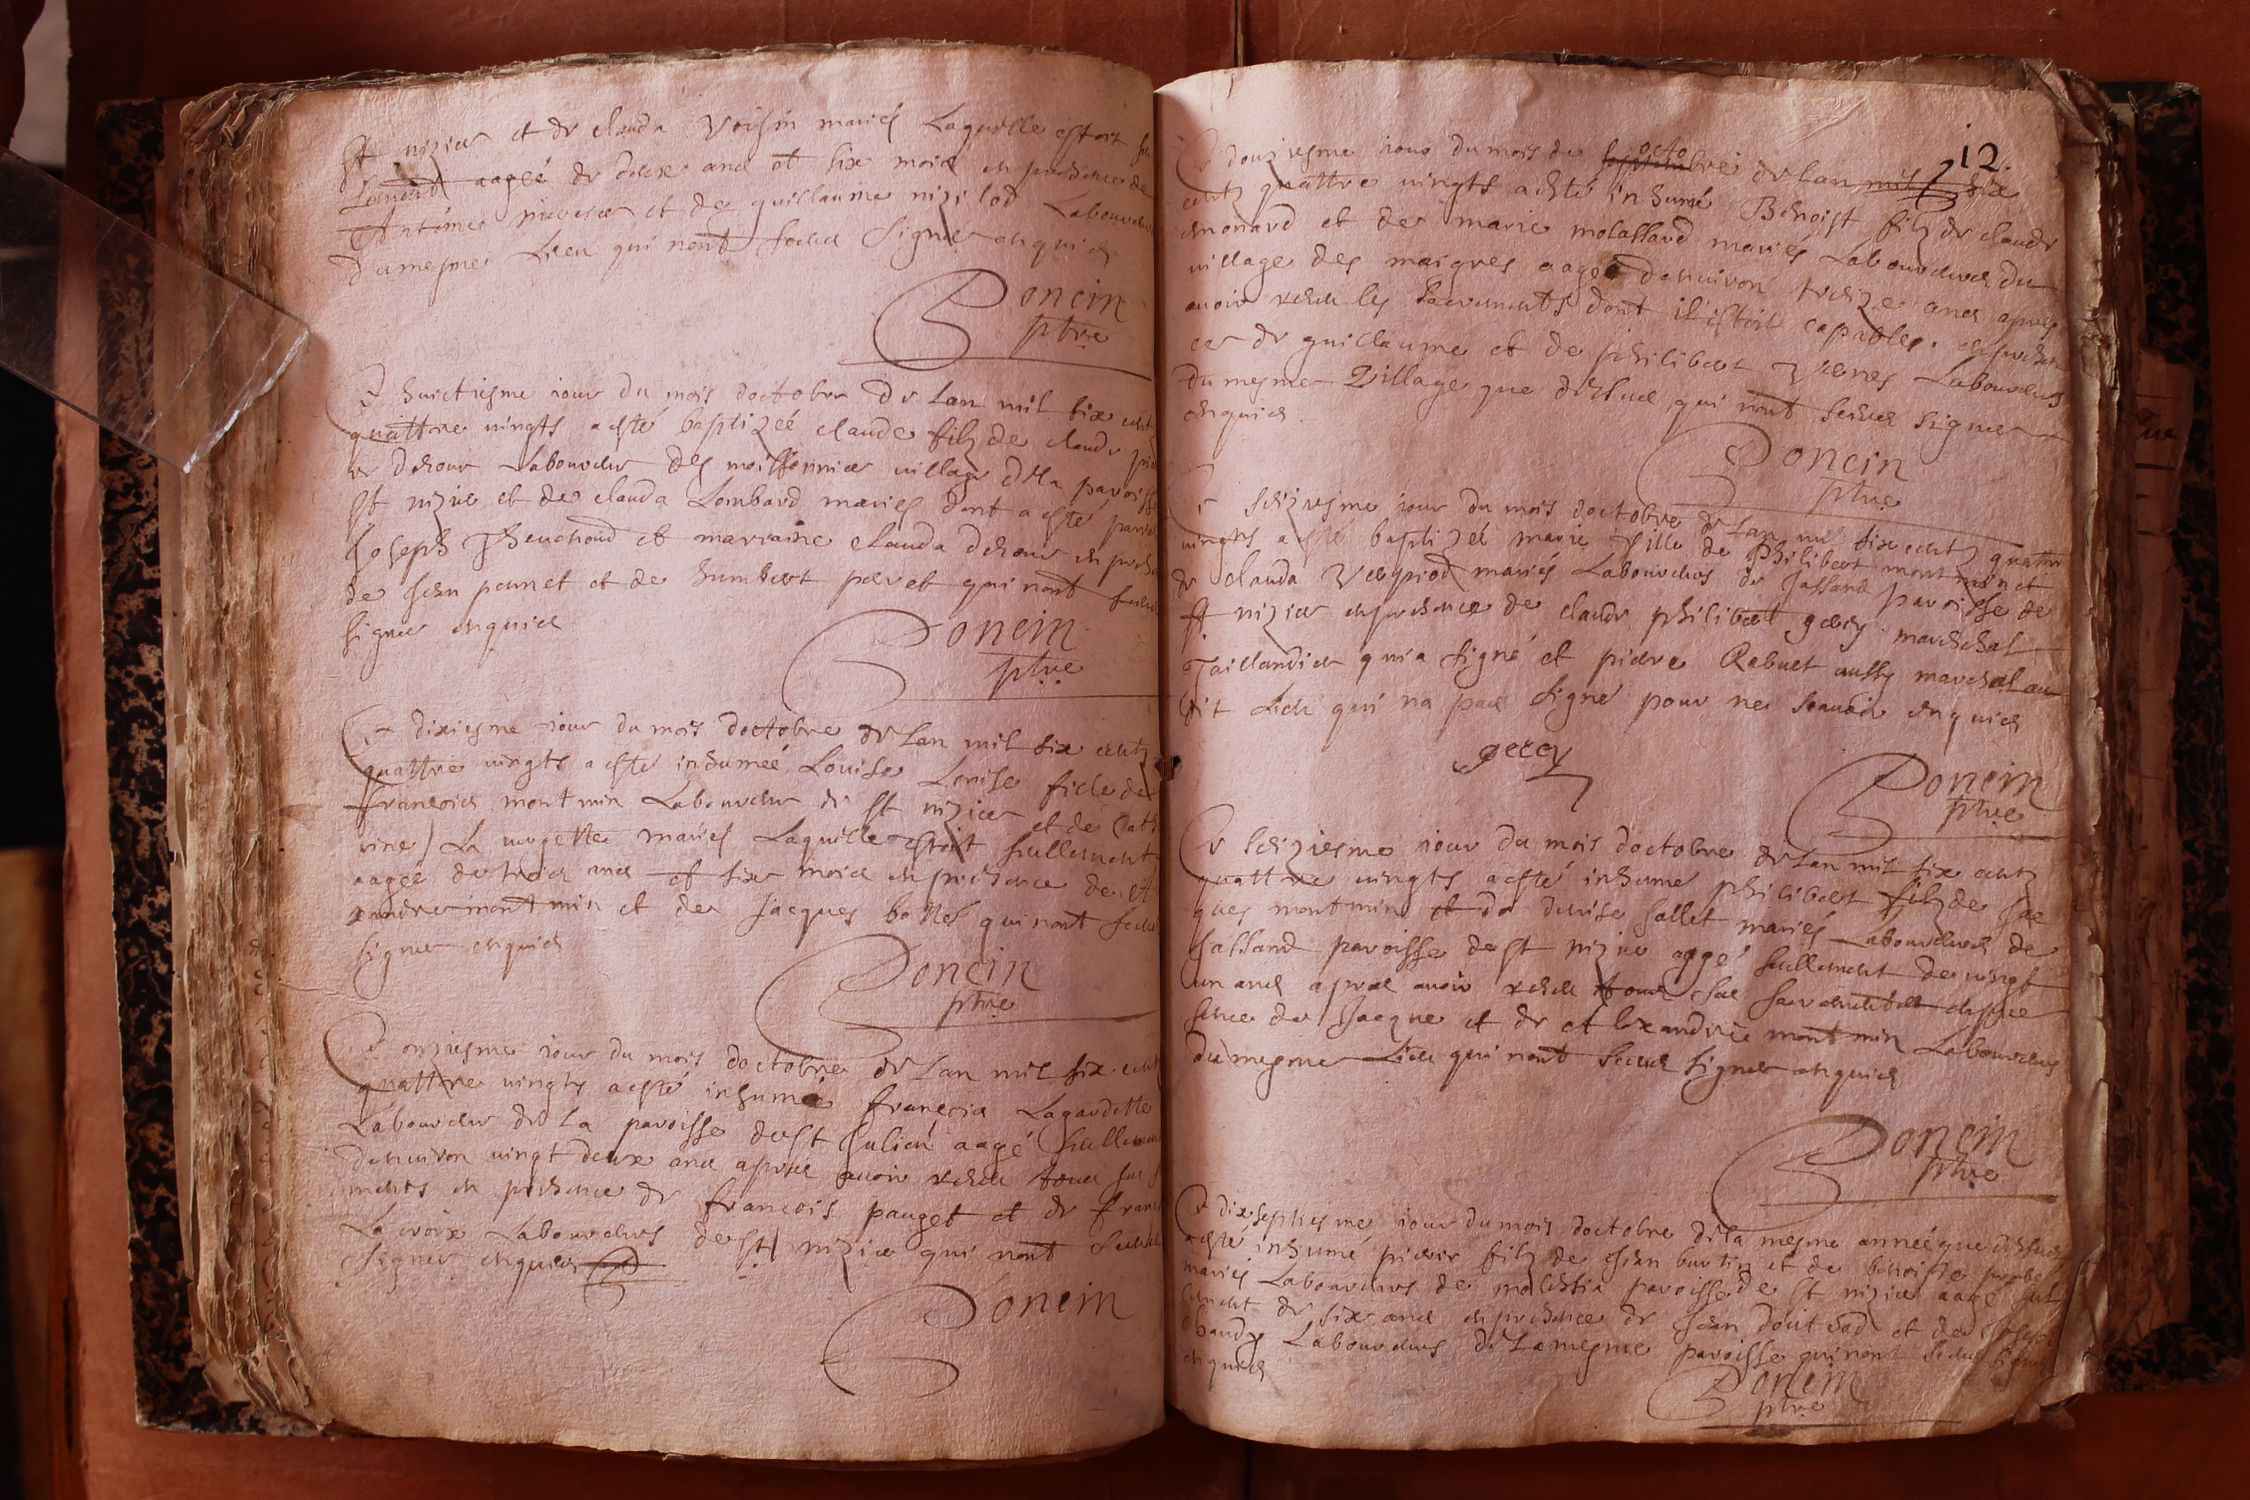 St nizier et de clauda Voisin mariés Laquelle estoit
aagéé de deux ans et six mois en presence de
Antoine et de guillaume nizilod Laboureur
dumesme Lieu qui nont sceu signer enquis
Poncin
ptre
Ce huictiesme iour du mois doctobre de Lan mil six cents
quattre vingts a esté baptizéé claude filz de claude
Laboureur des moissonnier village de La paroisse
St nizier et de clauda Lombard mariés dont a esté
Joseph Theuenond et marraine clauda en
de Jean perret et de humbert perret qui nont sceu
signer enquis
Poncin
ptre
Ce dixiesme iour du mois doctobre de Lan mil six cents
quattre vingts a esté inhuméé Louise Louise fille de
francois montmin Laboureur de St nizier et de Cath
rine La mariés Laquelle estoit seullement
aagéé de trois ans et six mois en presence de
xandre montmin et de Jacques qui nont sceu
signer enquis
Poncin
ptre
Ce onziesme iour du mois doctobre de Lan mil six cents
quattre vingts a esté inhumé francois Lagardette
Laboureur de La paroisse de St Julien aagé seullement
denuiron vingt deux ans apres auoir receu tous ses
ments en presence de francois pauget et de
La croix Laboureurs de St nizier qui nont sceu
signer enquis
Poncin
12.
Ce douziesme iour du mois de octobre de Lan mil six
cents quattre vingts a esté inhumé Benoist filz de claude
monard et de marie molassard mariés Laboureurs du
village des maigres aagé denuiron treize ans apres
auoir receu les sacrements dont il estoit capable. en presen
ce de guillaume et de philibert Laboureurs
du mesme Village que dessus qui nont sceu signer
enquis.
Poncin
ptre
Ce seiziesme iour du mois doctobre de Lan mil six cents quattre
vingts a esté baptizéé marie fille de Philibert montmin et
de clauda mariés Laboureurs de Jassand paroisse de
St nizier en presence de claude philibert gerey mareschal
Taillandier qui a signé et pierre Rebuet aussy mareschal au
dit Lieu qui na pas signé pour ne scauoir enquis
gerey
Poncin
ptre
Ce seiziesme iour du mois doctobre de Lan mil six cents
quattre vingts a esté inhumé philibert filz de Jac
ques montmin et de denise Jallet mariés Laboureurs de
Jassand paroisse de St nizier aagé seullement de vingt
un ans apres auoir receu tous ses sacrements en pre
sence de Jacque et de Alexandre montmin Laboureurs
du mesme Lieu qui nont sceu signer enquis
Poncin
ptre
Ce dixseptiesme iour du mois doctobre de La mesme année que dessus
a esté inhumé pierre filz de Jean burtin et de benoiste
mariés Laboureurs de paroisse de St nizier aagé seul
lement de six ans en presence de Jean et de Joseph
Laboureurs de La mesme paroisse qui nont sceu signer
enquis
Poncin
ptre